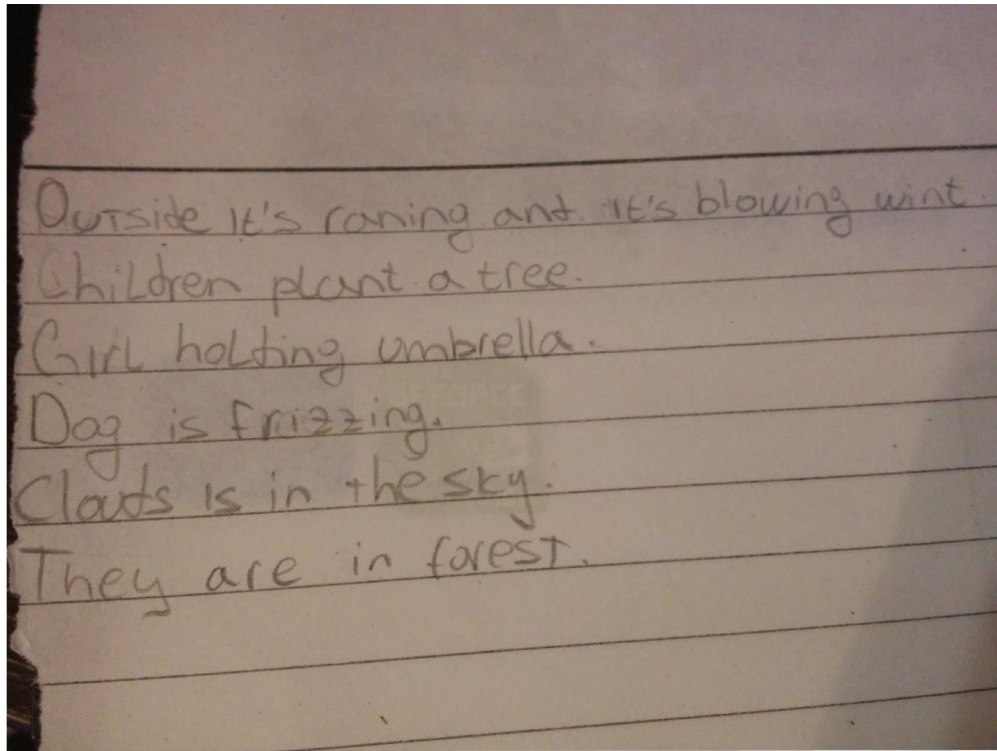 Outside it's raning and it's blowing wint.
Children plant a tree.
Girl holding umbrella.
Dog is frizzing.
Clouds is in the sky.
They are in forest.